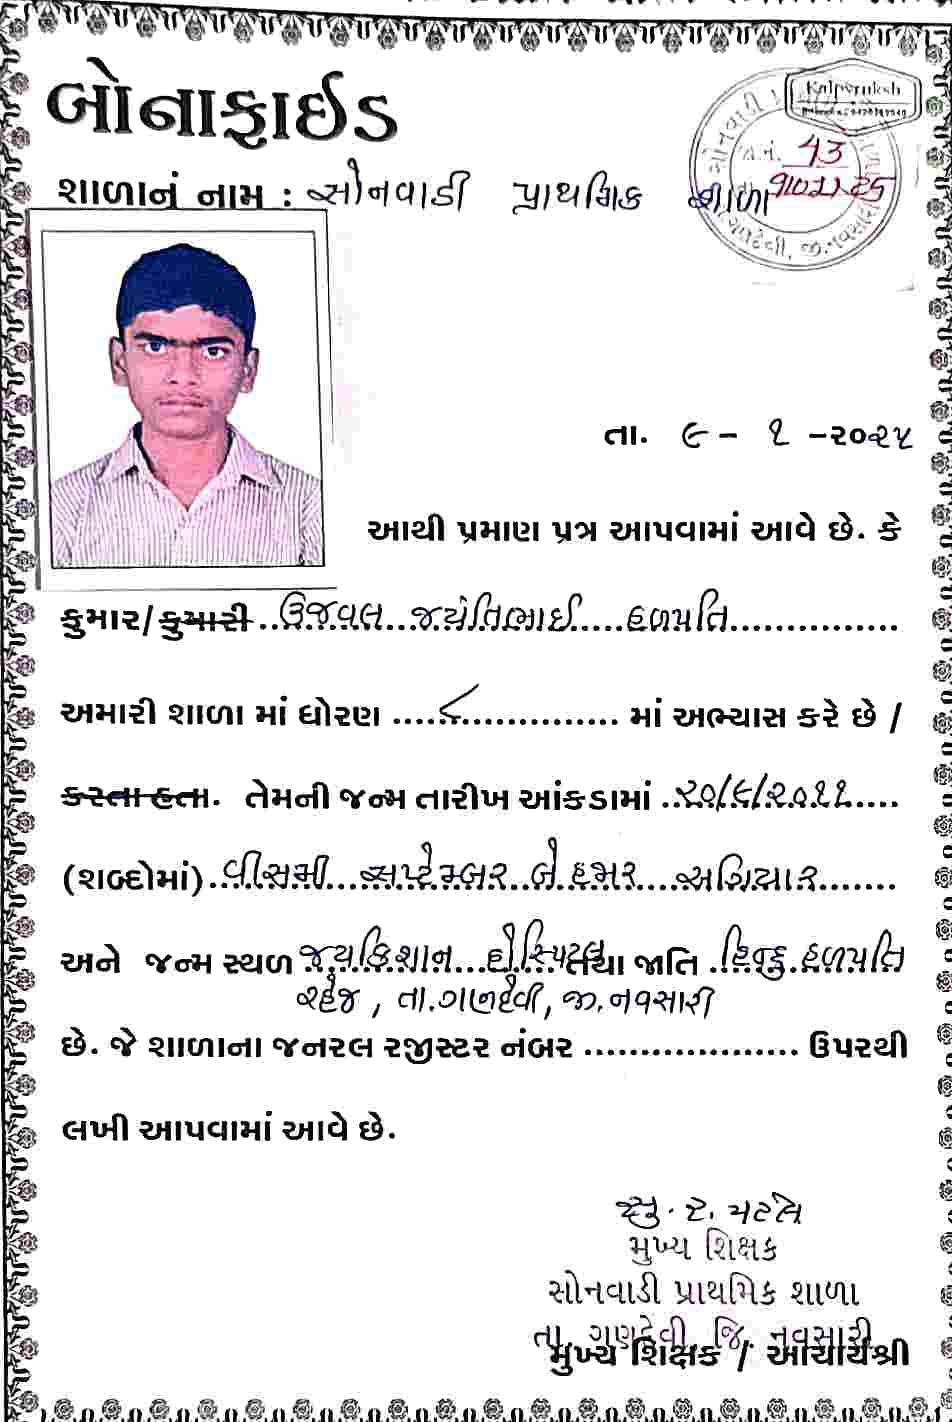 બોનાફાઈડ
Kalpvruksh
જા.નં. 43
શાળાનું નામ : સોનવાડી પ્રાથમિક શાળા
ગણદેવી, જી.નવસારી
તા. ૯ - ૧ - ૨૦૨૫
આથી પ્રમાણ પત્ર આપવામાં આવે છે. કે
કુમાર/કુમારી ..ઉજવલ...જયંતિભાઈ.....હળપતિ...............
અમારી શાળા માં ધોરણ ....૮............... માં અભ્યાસ કરે છે /
કરતા હતા. તેમની જન્મ તારીખ આંકડામાં ..૨૦/૯/૨૦૧૧.....
(શબ્દોમાં)..વીસમી...સપ્ટેમ્બર..બે હજાર....અગિયાર.......
અને જન્મ સ્થળ જયકિશાન હોસ્પિટલ તથા જાતિ ..હિન્દુ હળપતિ
રહેજ , તા.ગણદેવી, જી.નવસારી
છે. જે શાળાના જનરલ રજીસ્ટર નંબર .................... ઉપરથી
લખી આપવામાં આવે છે.
સુ. ર. પટેલ
મુખ્ય શિક્ષક
સોનવાડી પ્રાથમિક શાળા
તા. ગણદેવી, જિ. નવસારી
મુખ્ય શિક્ષક / આચાર્યશ્રી